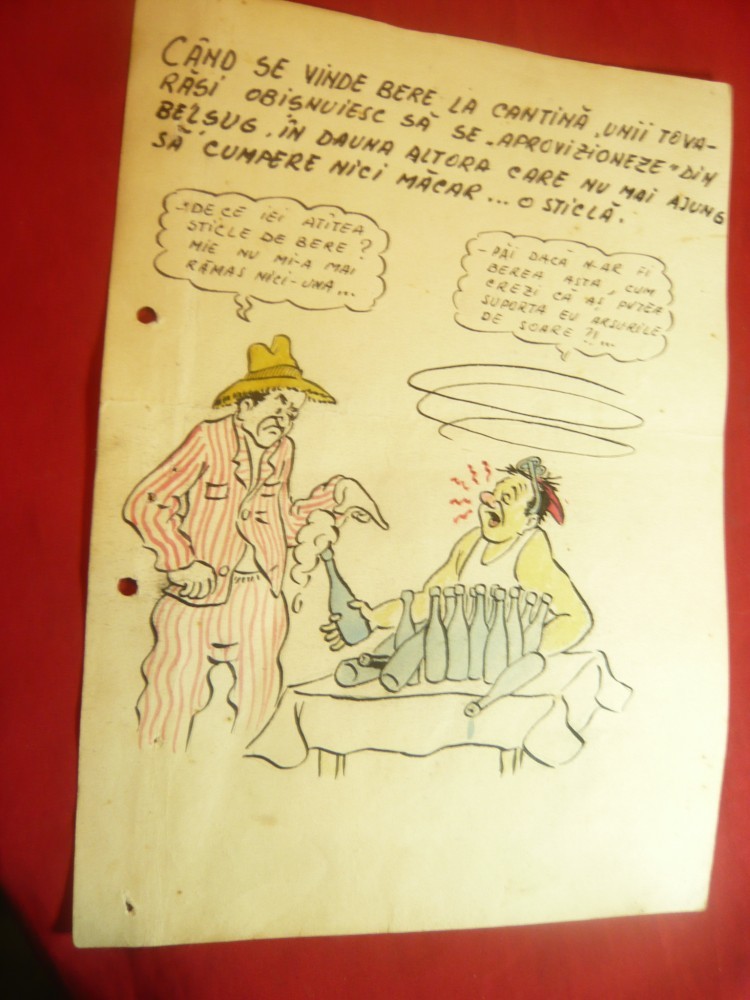 CÂND SE VINDE BERE LA CANTINĂ, UNII TOVA-
RĂSI OBIȘNUIESC SĂ SE „APROVIZIONEZE” DIN
BELȘUG, ÎN DAUNA ALTORA CARE NU MAI AJUNG
SĂ CUMPERE NICI MĂCAR... O STICLĂ.
- DE CE IEI ATÎTEA
STICLE DE BERE?
MIE NU MI-A MAI
RĂMAS NICI-UNA...
- PĂI DACĂ N-AR FI
BEREA ASTA, CUM
CREZI CĂ AȘ PUTEA
SUPORTA EU ARSURILE
DE SOARE?!...